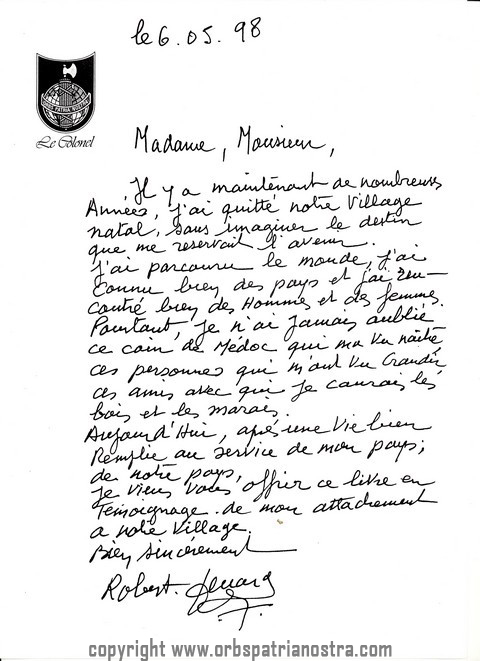 le 6.05.98
Le Colonel
Madame, Monsieur,
Il y a maintenant de nombreuses
Années, j'ai quitté notre Village
natal, sans imaginer le destin
que me reservait l'avenir.
j'ai parcouru le monde, j'ai
Connu bien des pays et j'ai ren-
contré bien des Hommes et des femmes.
Pourtant, je n'ai jamais oublié
ce coin de Médoc qui m'a vu naître
ces personnes qui m'ont vu Grandir,
ces amis avec qui je courais les
bois et les marais.
Aujourd'Hui, après une Vie bien
Remplie au service de mon pays,
de notre pays,
je Viens Vous offrir ce livre en
Temoignage de mon attachement
a notre Village.
Bien sincèrement
Robert
copyright www.orbspatrianostra.com